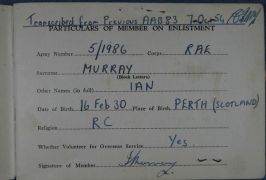 Transcribed from Previous AAB83 7-Oct-56
PARTICULARS OF MEMBER ON ENLISTMENT
Army Number 5/1986 Corps RAE
Surname MURRAY
(Block Letters)
Other Names (in full) IAN
Date of Birth 16 Feb 30 Place of Birth PERTH (SCOTLAND)
Religion RC
Whether Volunteer for Overseas Service Yes
Signature of Member